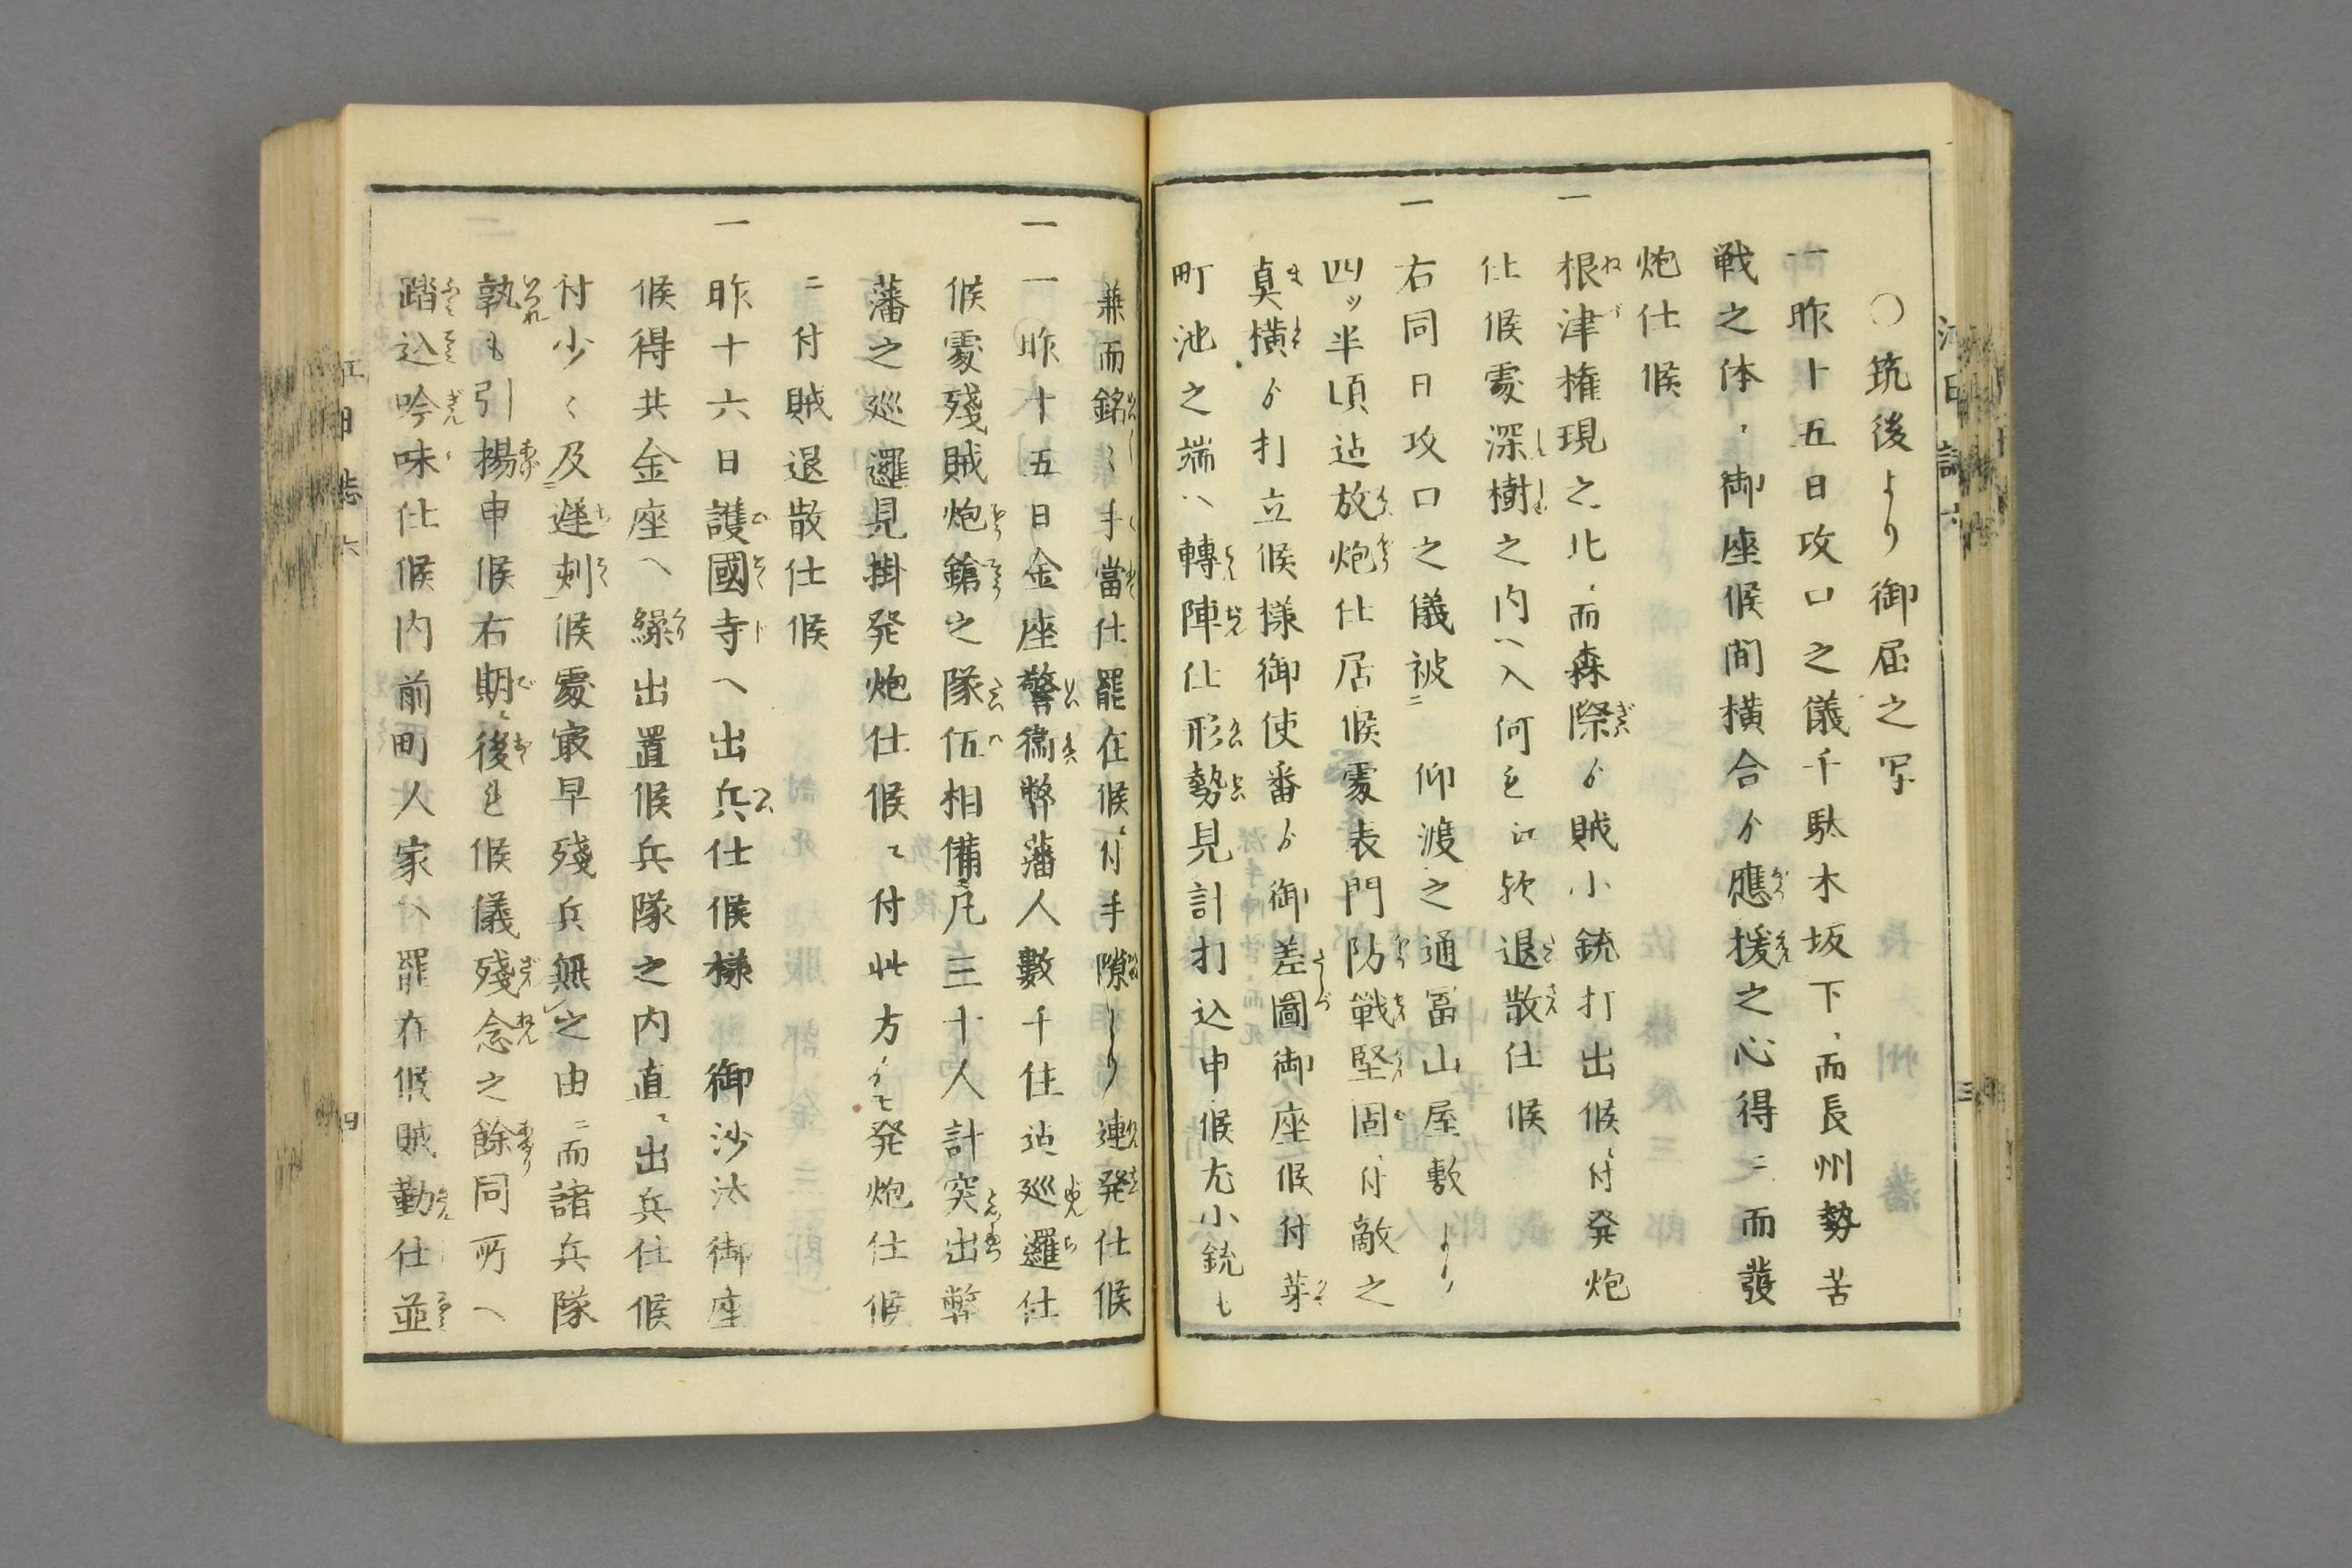 ○筑後より御届之写
一昨十五日攻口之儀千駄木坂下ニ而長州勢苦
戦之体ニ御座候間横合ゟ應援之心得ニ而發
炮仕候
一根津権現之北ニ而森際ゟ賊小銃打出候ニ付発炮
仕候處深樹之内ヘ入何を江欤退散仕候
一右同日攻口之儀被二仰渡之通冨山屋敷より
四ッ半頃迠放炮仕居候處表門防戦堅固ニ付敵之
真横ゟ打立候様御使番ゟ御差圖御座候付茅
町池之端ヘ轉陣仕形勢見計打込申候尤小銃も
兼而銘〻手當仕罷在候ニ付手隙より連発仕候
一一昨十五日金座警衛弊藩人數千住迠巡邏仕
候處殘賊炮鎗之隊伍相備凡三十人計突出弊
藩之巡邏見掛発炮仕候ニ付此方ゟも発炮仕候
ニ付賊退散仕候
一昨十六日護國寺ヘ出兵仕候様御沙汰御座
候得共金座ヘ繰出置候兵隊之内直ニ出兵仕候
付少〻及二遅刻一候處最早殘兵無之由ニ而諸兵隊
孰も引揚申候右期ニ後を候儀殘念之餘同所ヘ
踏込吟味仕候内前町人家ヘ罷在候賊勦仕並
江日誌六
三
江日誌六
四